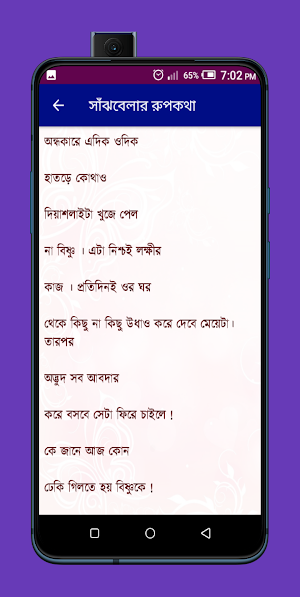 65% 7:02 PM
সাঁঝবেলার রুপকথা
অন্ধকারে এদিক ওদিক
হাতড়ে কোথাও
দিয়াশলাইটা খুজে পেল
না বিষ্ণু । এটা নিশ্চই লক্ষীর
কাজ । প্রতিদিনই ওর ঘর
থেকে কিছু না কিছু উধাও করে দেবে মেয়েটা।
তারপর
অদ্ভুদ সব আবদার
করে বসবে সেটা ফিরে চাইলে !
কে জানে আজ কোন
ঢেকি গিলতে হয় বিষ্ণুকে !